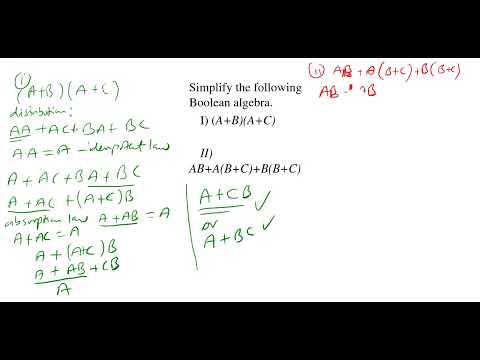 (i)
(A+B)(A+C)
distribution:
AA + AC + BA + BC
AA = A - idempotent law
A + AC + BA + BC
A + AC + (A+C)B
absorption law A + AB = A
A + AC = A
A + (A+C)B
A + AB + CB
A
Simplify the following
Boolean algebra.
I) (A+B)(A+C)
II)
AB+A(B+C)+B(B+C)
A + CB ✓
or
A + BC ✓
(ii) AB + A(B+C)+B(B+C)
AB